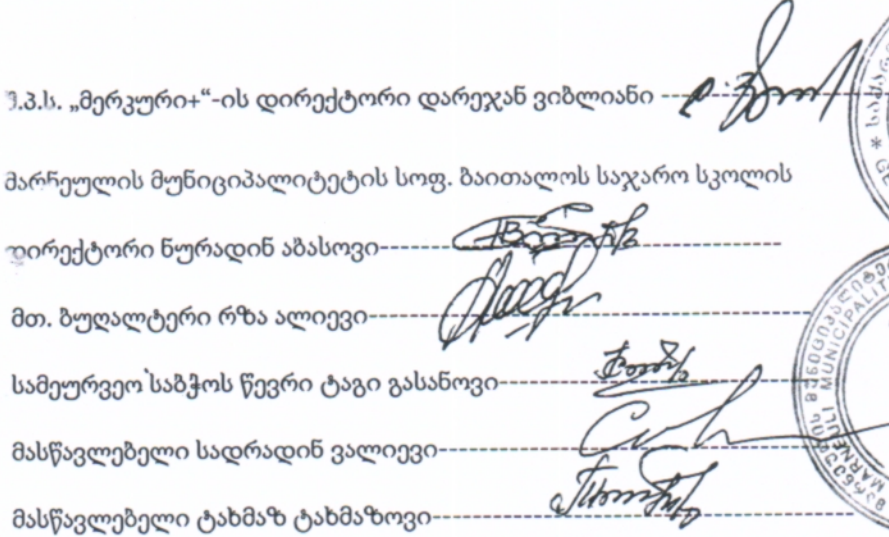 შ.პ.ს. „მერკური+“-ის დირექტორი დარეჯან ვიბლიანი ---
მარნეულის მუნიციპალიტეტის სოფ. ბაითალოს საჯარო სკოლის
დირექტორი ნურადინ აბასოვი---
მთ. ბუღალტერი რზა ალიევი---
სამეურვეო საბჭოს წევრი ტაგი გასანოვი---
მასწავლებელი სადრადინ ვალიევი---
მასწავლებელი ტახმაზ ტახმაზოვი---
MARNEULI MUNICIPALIT